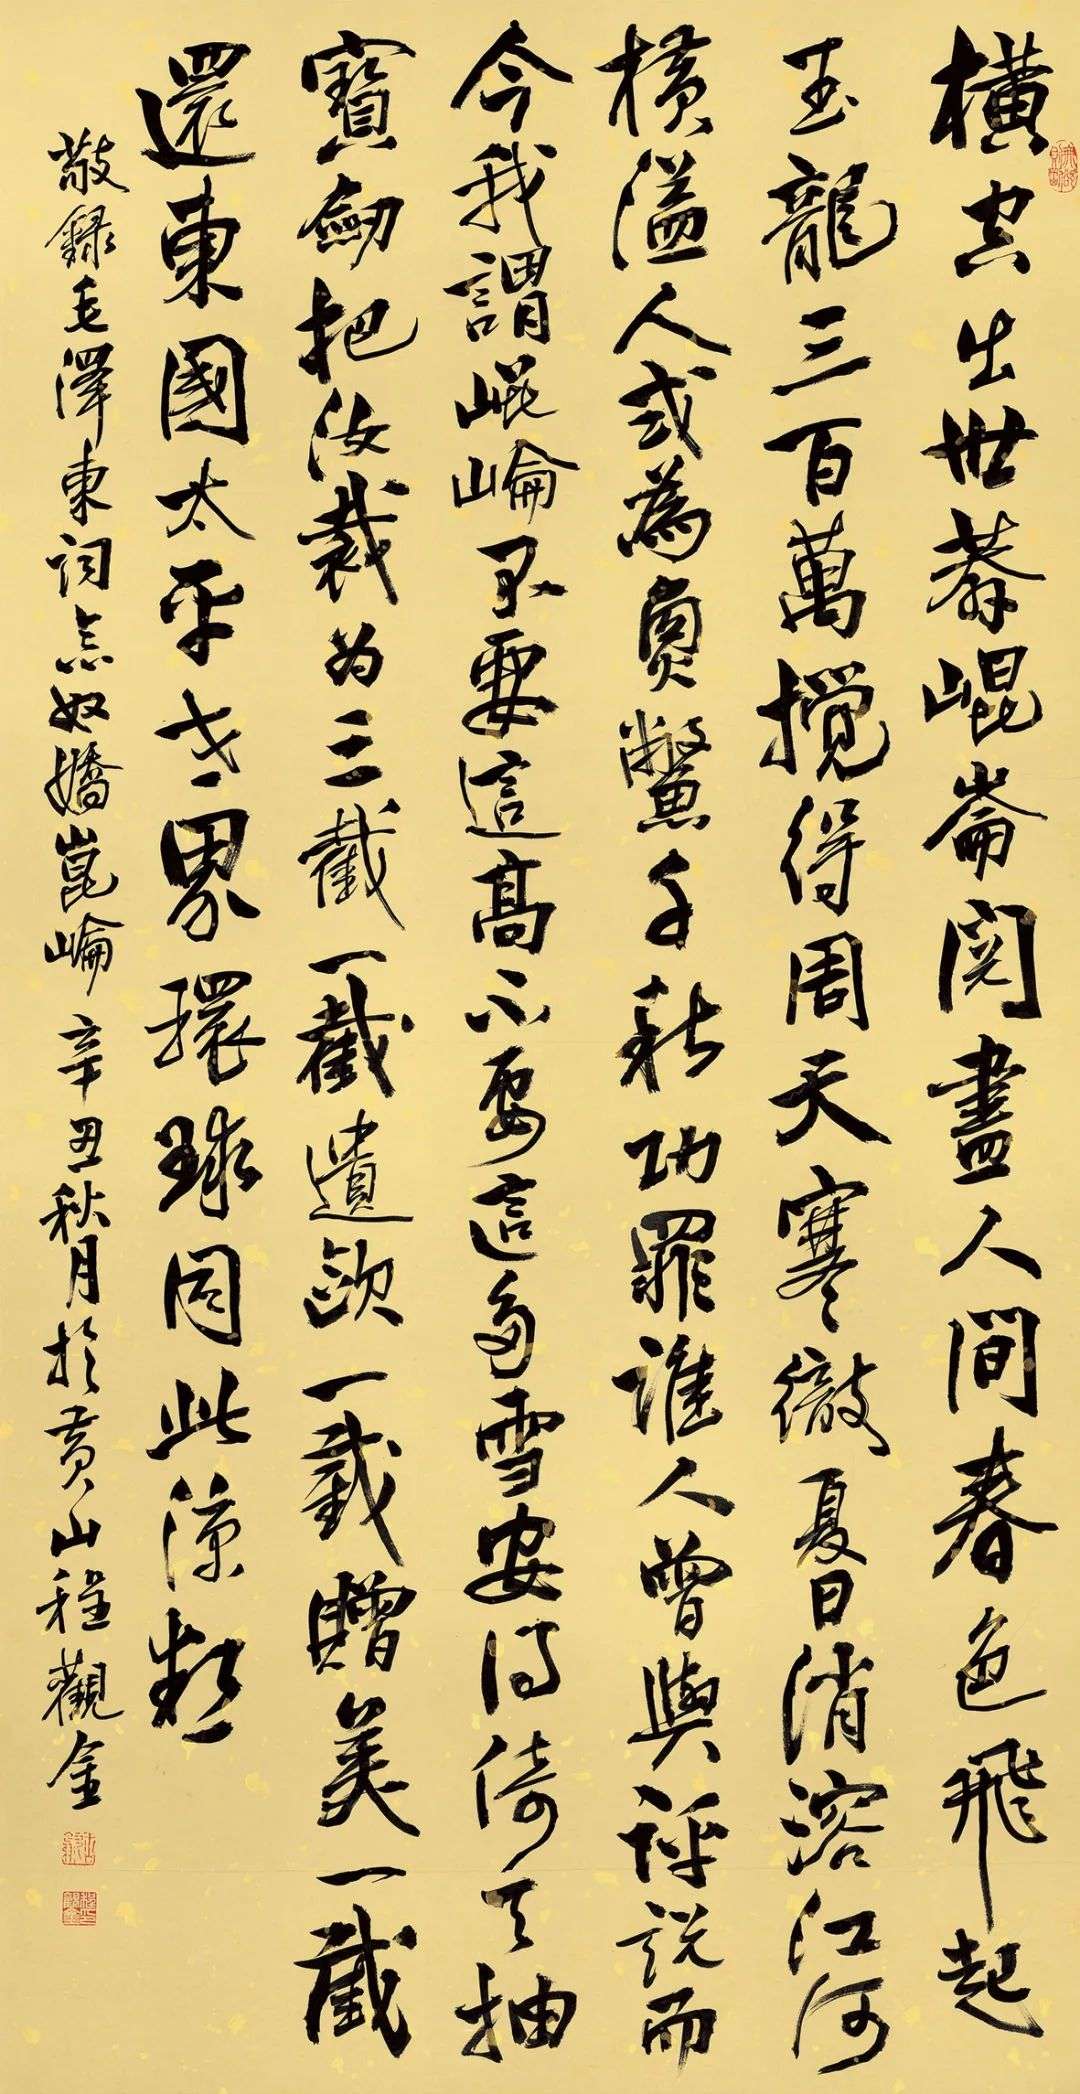 橫空出世莽崐崙閱盡人間春色飛起
玉龍三百萬攪得周天寒徹夏日消溶江河
橫溢人或為魚鱉千秋功罪誰人曾與評說而
今我謂崐崘不要這高不要這多雪安得倚天抽
寶劍把汝裁为三截一截遺歐一截贈美一截
還東國太平世界環球同此涼熱
敬録毛澤東词念奴嬌崑崘辛丑秋月於黄山程觀金